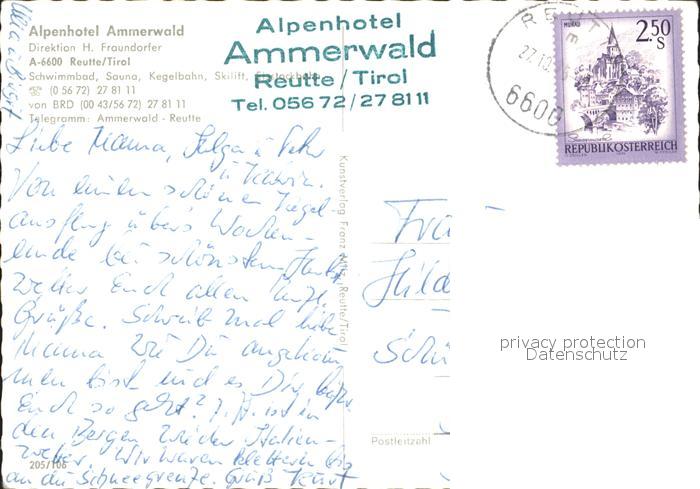 Alpenhotel Ammerwald
Direktion H. Fraundorfer
A-6600 Reutte/Tirol
Schwimmbad, Sauna, Kegelbahn, Skilift,
☎ (0 56 72) 27 8 11
von BRD (00 43/56 72) 27 8 11
Telegramm: Ammerwald - Reutte
Alpenhotel
Ammerwald
Reutte / Tirol
Tel. 056 72 / 27 81 11
6600
MURAU
2.50
S
REPUBLIK ÖSTERREICH
Liebe Mama, Helga u
u Katrin.
Von einem schönen Kegel-
ausflug übers Wochen-
ende bei schönstem Herbst
wetter Euch allen
Grüße. Schreib mal liebe
Mama wie Du angekom
men bist und es Dir bzw.
Euch so geht? z. Zt. ist in
den Bergen wieder Italien-
wetter. Wir waren klettern bis
an die Schneegrenze. Gruß Kurt
Kunstverlag Franz Milz, Reutte/Tirol
Frau
Hilda
Postleitzahl
205/106
privacy protection
Datenschutz